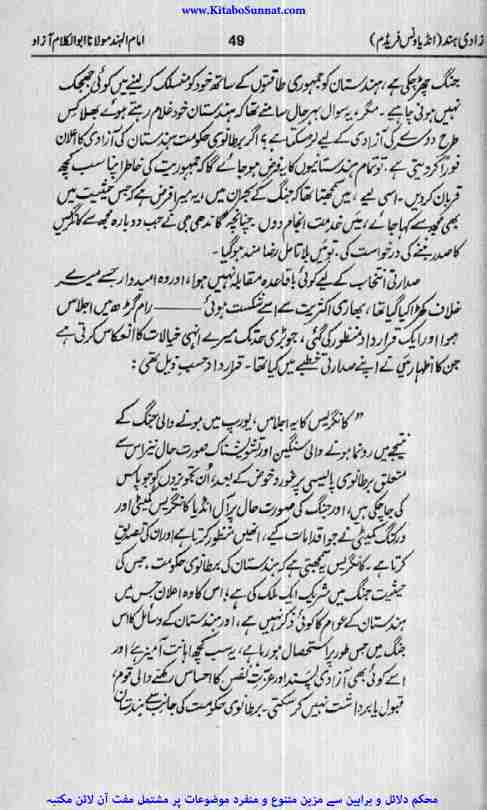 www.KitaboSunnat.com
زادی ہند (انڈیا ونس فریڈم)
49
امام الہند مولانا ابوالکلام آزاد
جنگ چھڑ چکی ہے، ہندستان کو جمہوری طاقتوں کے ساتھ خود کو منسلک کر لینے میں کوئی جھجک
نہیں ہونی چاہیے۔ مگر، یہ سوال بہر حال سامنے تھا کہ ہندستان خود غلام رہتے ہوئے بھلا کس
طرح دوسرے کی آزادی کے لیے لڑ سکتا ہے؟ اگر برطانوی حکومت ہندستان کی آزادی کا اعلان
فوراً کر دیتی ہے۔ تو تمام ہندستانیوں کا یہ فرض ہو جائے گا کہ جمہوریت کی خاطر اپنا سب کچھ
قربان کر دیں۔ اسی لیے، میں سمجھتا تھا کہ جنگ کے بحران میں، یہ میرا فرض ہے کہ جس حیثیت میں
بھی مجھ سے کہا جائے، میں خدمت انجام دوں۔ چنانچہ گاندھی جی نے جب دوبارہ مجھ سے کانگریس
کا صدر بننے کی درخواست کی۔ تو میں بلا تامل رضامند ہو گیا۔
صدارتی انتخاب کے لیے کوئی باقاعدہ مقابلہ نہیں ہوا، اور وہ امیدوار جسے میرے
خلاف کھڑا کیا گیا تھا، بھاری اکثریت سے اسے شکست ہوئی ——— رام گڑھ میں اجلاس
ہوا اور ایک قرارداد منظور کی گئی، جو بڑی حد تک میرے انہی خیالات کا انعکاس کرتی ہے
جن کا اظہار میں نے اپنے صدارتی خطبے میں کیا تھا۔ قرارداد حسب ذیل تھی:
”کانگریس کا یہ اجلاس، یورپ میں ہونے والی جنگ کے
نتیجے میں رونما ہونے والی سنگین اور تشویشناک صورت حال نیز اس سے
متعلق برطانوی پالیسی پر غور و خوض کے بعد، اُن تجویزوں کو جو پاس
کی جا چکی ہیں، اور جنگ کی صورت حال پر آل انڈیا کانگریس کمیٹی اور
ورکنگ کمیٹی نے جو اقدامات کیے، انھیں منظور کرتا ہے اور ان کی تصدیق
کرتا ہے۔ کانگریس یہ سمجھتی ہے کہ ہندستان کی برطانوی حکومت۔ جس کی
حیثیت جنگ میں شریک ایک ملک کی ہے؛ اس کا وہ اعلان جس میں
ہندستان کے عوام کا کوئی ذکر نہیں ہے، اور ہندستان کے وسائل کا اس
جنگ میں جس طور پر استحصال ہو رہا ہے، یہ سب کچھ اہانت آمیز ہے اور
اسے کوئی بھی آزادی پسند اور عزتِ نفس کا احساس رکھنے والی قوم،
قبول یا برداشت نہیں کر سکتی۔ برطانوی حکومت کی جانب سے ہندستان
محکم دلائل و براہین سے مزین متنوع و منفرد موضوعات پر مشتمل مفت آن لائن مکتبہ